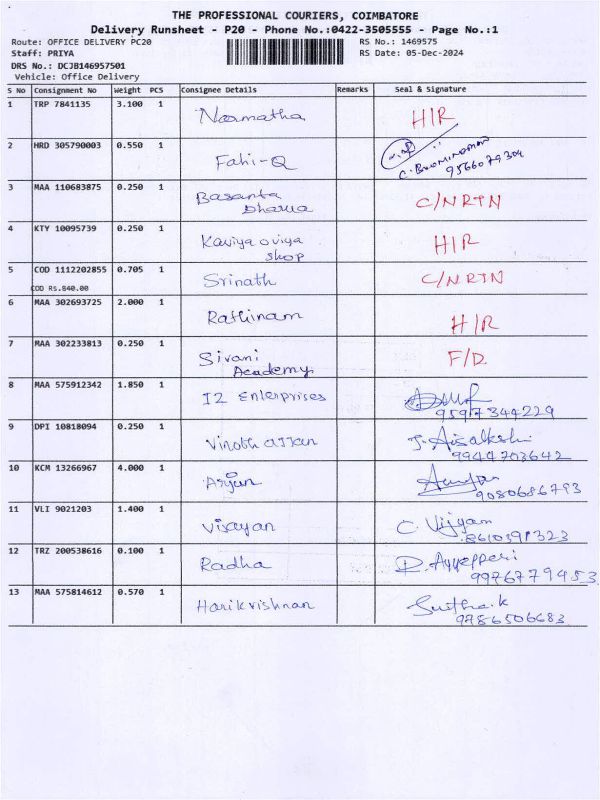 THE PROFESSIONAL COURIERS, COIMBATORE
Delivery Runsheet - P20 - Phone No.:0422-3505555 - Page No.:1
Route: OFFICE DELIVERY PC20 RS No.: 1469575
Staff: PRIYA RS Date: 05-Dec-2024
DRS No.: DCJB146957501
Vehicle: Office Delivery
S No Consignment No Weight PCS Consignee Details Remarks Seal & Signature
1 TRP 7841135 3.100 1 Narmatha H/R
2 HRD 305790003 0.550 1 Fahi-Q
9566079304
3 MAA 110683875 0.250 1 Basanta C/N RTN
Sharma
4 KTY 10095739 0.250 1 Kaviya oviya H/R
shop
5 COD 1112202855 0.705 1 Srinath C/N RTN
COD Rs.840.00
6 MAA 302693725 2.000 1 Rathinam H/R
7 MAA 302233813 0.250 1 Sivani F/D
Academy
8 MAA 575912342 1.850 1 I2 Enlerprises
9597344229
9 DPI 10818094 0.250 1
9944703642
10 KCM 13266967 4.000 1 Arjun
9080686793
11 VLI 9021203 1.400 1 Vijayan C. Vijyam
8610391323
12 TRZ 200538616 0.100 1 Radha
9976779453
13 MAA 575814612 0.570 1 Harikrishnan
9786506683